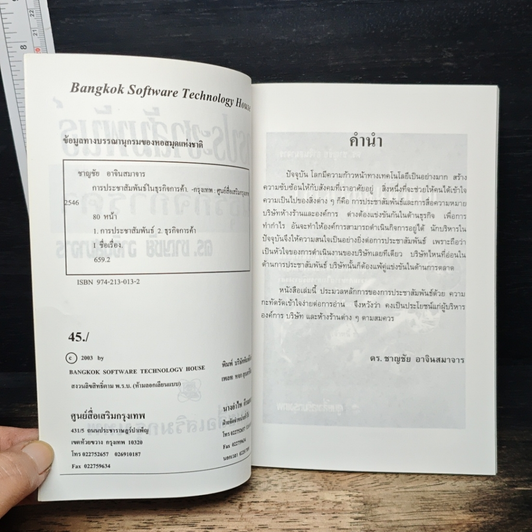 Bangkok Software Technology House
ข้อมูลทางบรรณานุกรมของหอสมุดแห่งชาติ
ชาญชัย อาจินสมาจาร
การประชาสัมพันธ์ในธุรกิจการค้า. -กรุงเทพ : ศูนย์สื่อเสริมกรุงเทพ
2546
80 หน้า
1. การประชาสัมพันธ์ 2. ธุรกิจการค้า
I ชื่อเรื่อง.
659.2
ISBN 974-213-013-2
45./
c 2003 by
BANGKOK SOFTWARE TECHNOLOGY HOUSE
สงวนลิขสิทธิ์ตาม พ.ร.บ. (ห้ามลอกเลียนแบบ)
ศูนย์สื่อเสริมกรุงเทพ
431/5 ถนนประชาราษฎร์บำเพ็ญ
เขตห้วยขวาง กรุงเทพ 10320
โทร 022752657 026910187
Fax 022759634
คำนำ
ปัจจุบัน โลกมีความก้าวหน้าทางเทคโนโลยีเป็นอย่างมาก สร้าง
ความซับซ้อนให้กับสังคมที่เราอาศัยอยู่ สิ่งหนึ่งที่จะช่วยให้คนได้เข้าใจ
ความเป็นไปของสิ่งต่าง ๆ ก็คือ การประชาสัมพันธ์และการสื่อความหมาย
บริษัทห้างร้านและองค์การ ต่างต้องแข่งขันกันในด้านธุรกิจ เพื่อการ
ทำกำไร อันจะทำให้องค์การสามารถดำเนินกิจการอยู่ได้ นักบริหารใน
ปัจจุบันจึงให้ความสนใจเป็นอย่างยิ่งต่อการประชาสัมพันธ์ เพราะถือว่า
เป็นหัวใจของการดำเนินงานของบริษัทเลยทีเดียว บริษัทไหนที่อ่อนใน
ด้านการประชาสัมพันธ์ บริษัทนั้นก็ต้องแพ้คู่แข่งขันในด้านการตลาด
หนังสือเล่มนี้ ประมวลหลักการของการประชาสัมพันธ์ด้วย ความ
กะทัดรัดเข้าใจง่ายต่อการอ่าน จึงหวังว่า คงเป็นประโยชน์แก่ผู้บริหาร
องค์การ บริษัท และห้างร้านต่าง ๆ ตามสมควร
ดร. ชาญชัย อาจินสมาจาร